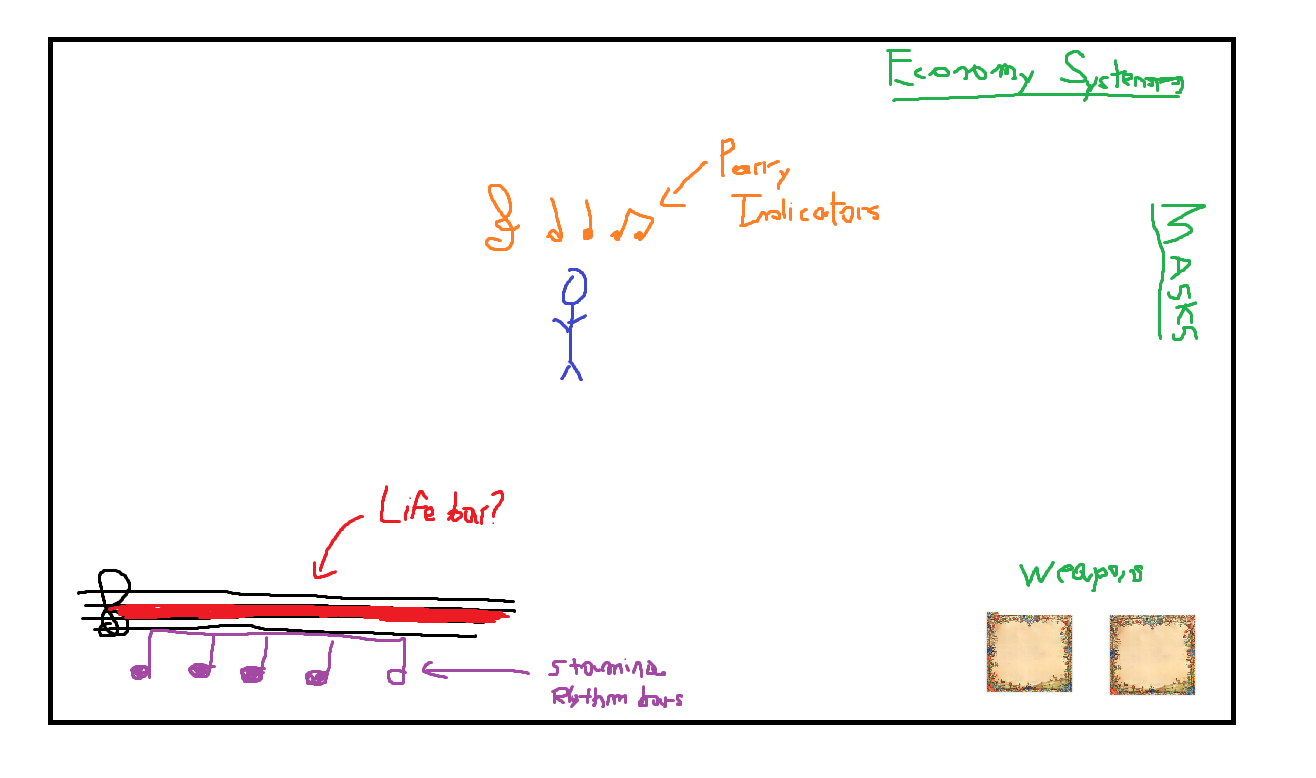 Economy Systems
Parry
Indicators
MASKS
Life bar?
Weapons
Stamina
Rhythm bars